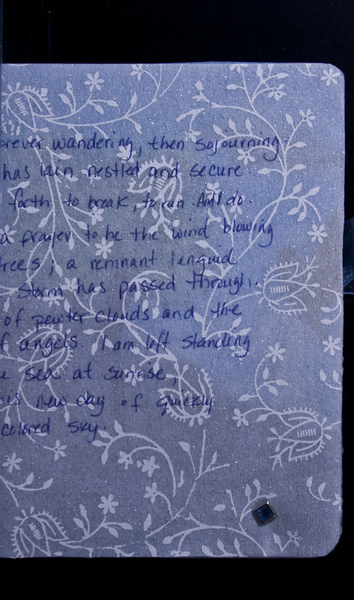 forever wandering, then sojourning.
has lain nestled and secure.
forth to break, to run. And do.
a prayer to be the wind blowing
trees, a remnant languid
storm has passed through.
of pewter clouds and the
of angels. I am left standing
sea at sunrise,
new day of quickly
colored sky.